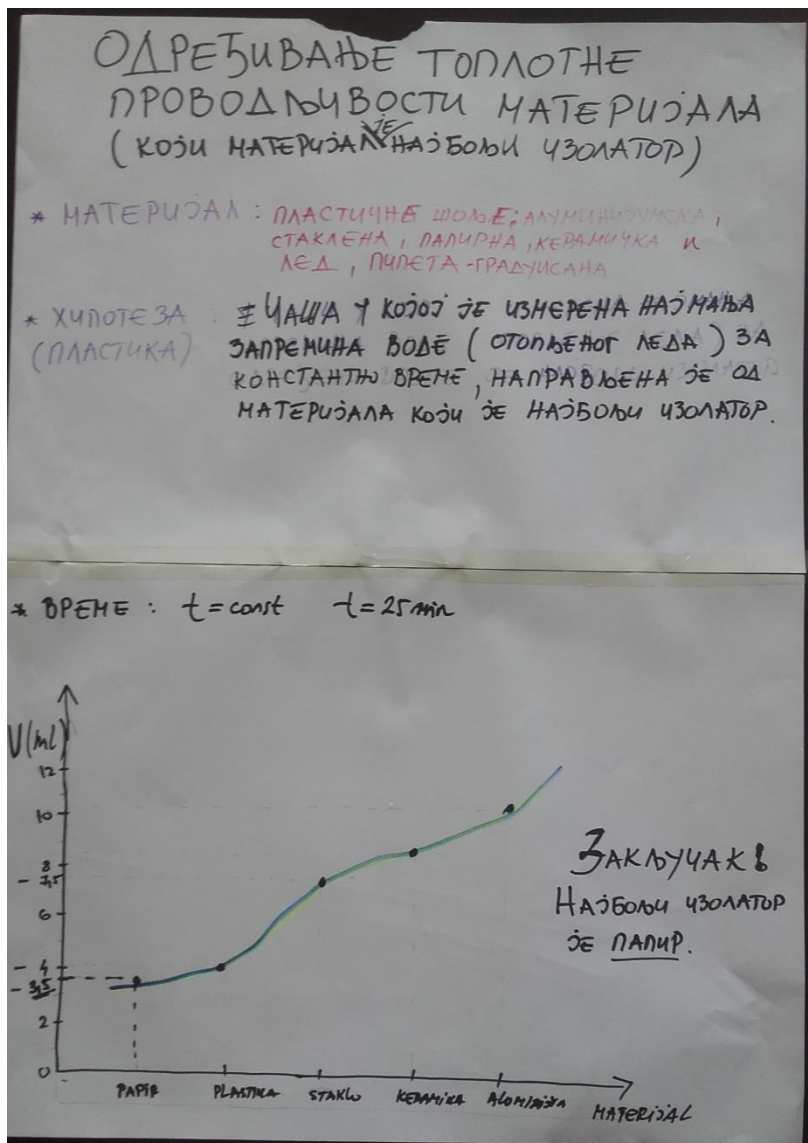 ОДРЕЂИВАЊЕ ТОПЛОТНЕ
ПРОВОДЉИВОСТИ МАТЕРИЈАЛА
(КОЈИ МАТЕРИЈАЛ ЈЕ НАЈБОЉИ ИЗОЛАТОР)
* МАТЕРИЈАЛ : ПЛАСТИЧНЕ ШОЉЕ; АЛУМИНИЈУМСКА,
СТАКЛЕНА, ПАПИРНА, КЕРАМИЧКА И
ЛЕД, ПИПЕТА-ГРАДУИСАНА
* ХИПОТЕЗА : ЧАША У КОЈОЈ ЈЕ ИЗМЕРЕНА НАЈМАЊА
(ПЛАСТИКА) ЗАПРЕМИНА ВОДЕ (ОТОПЉЕНОГ ЛЕДА) ЗА
КОНСТАНТНО ВРЕМЕ, НАПРАВЉЕНА ЈЕ ОД
МАТЕРИЈАЛА КОЈИ ЈЕ НАЈБОЉИ ИЗОЛАТОР.
* ВРЕМЕ : t = const t = 25 min
V(ml)
12
10
8
7,5
6
4
3,5
2
0
PAPIR PLASTIKA STAKLO KERAMIKA
MATERIJAL
ЗАКЉУЧАК:
НАЈБОЉИ ИЗОЛАТОР
ЈЕ ПАПИР.